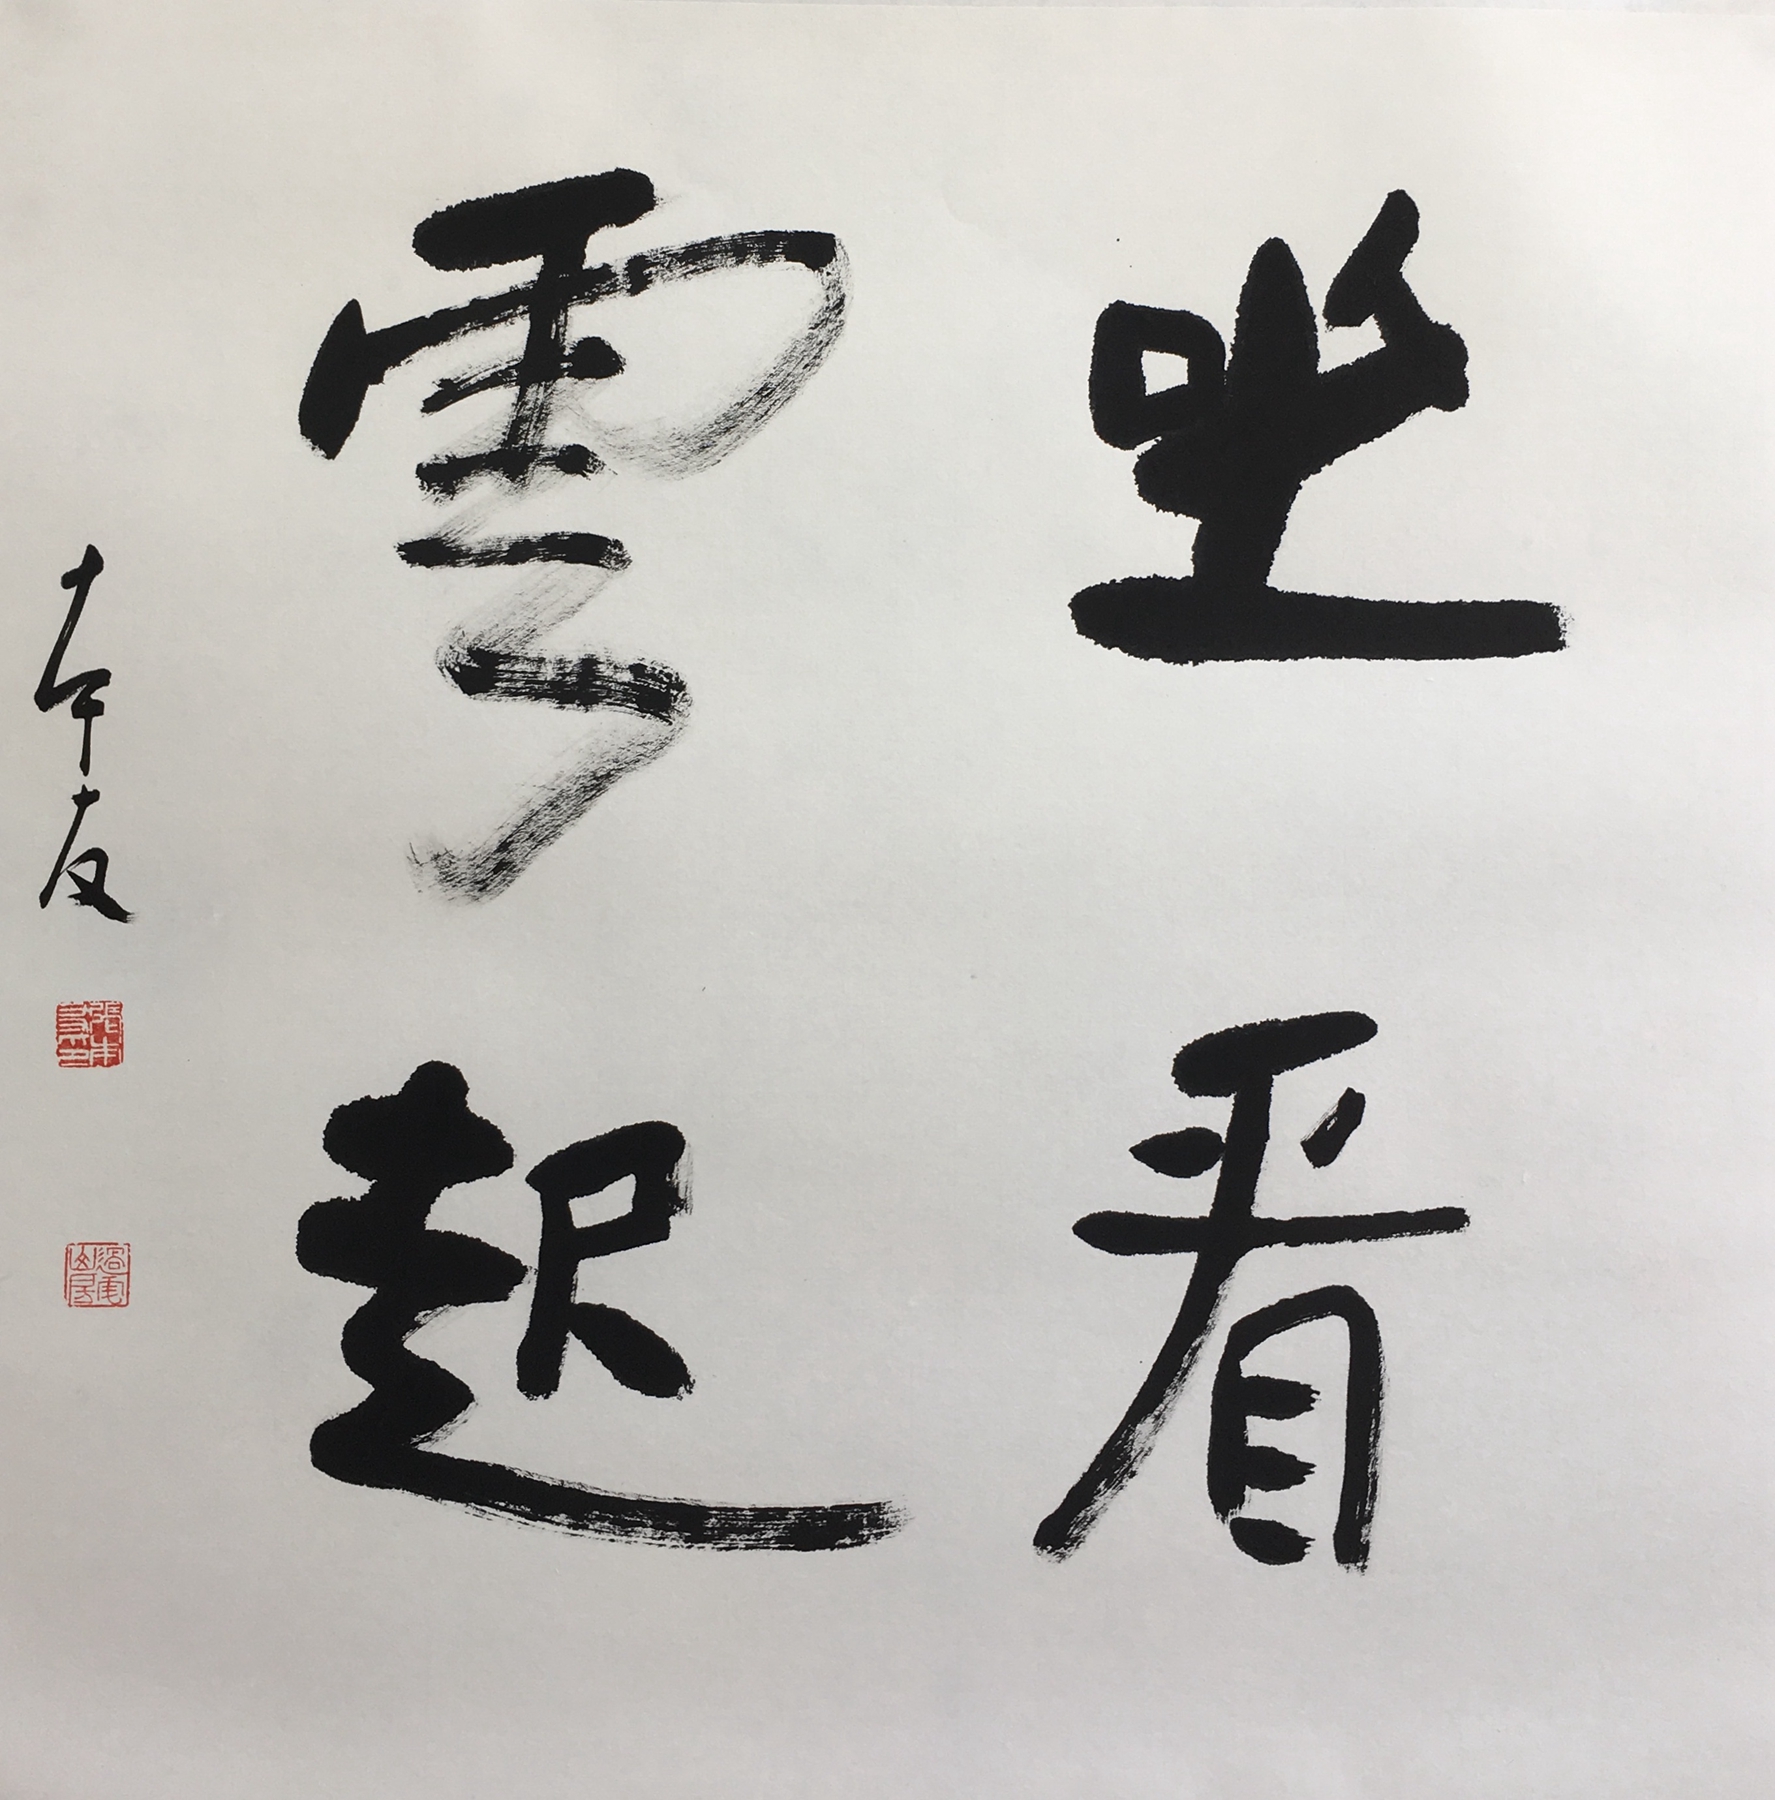 坐看
雲起
本友